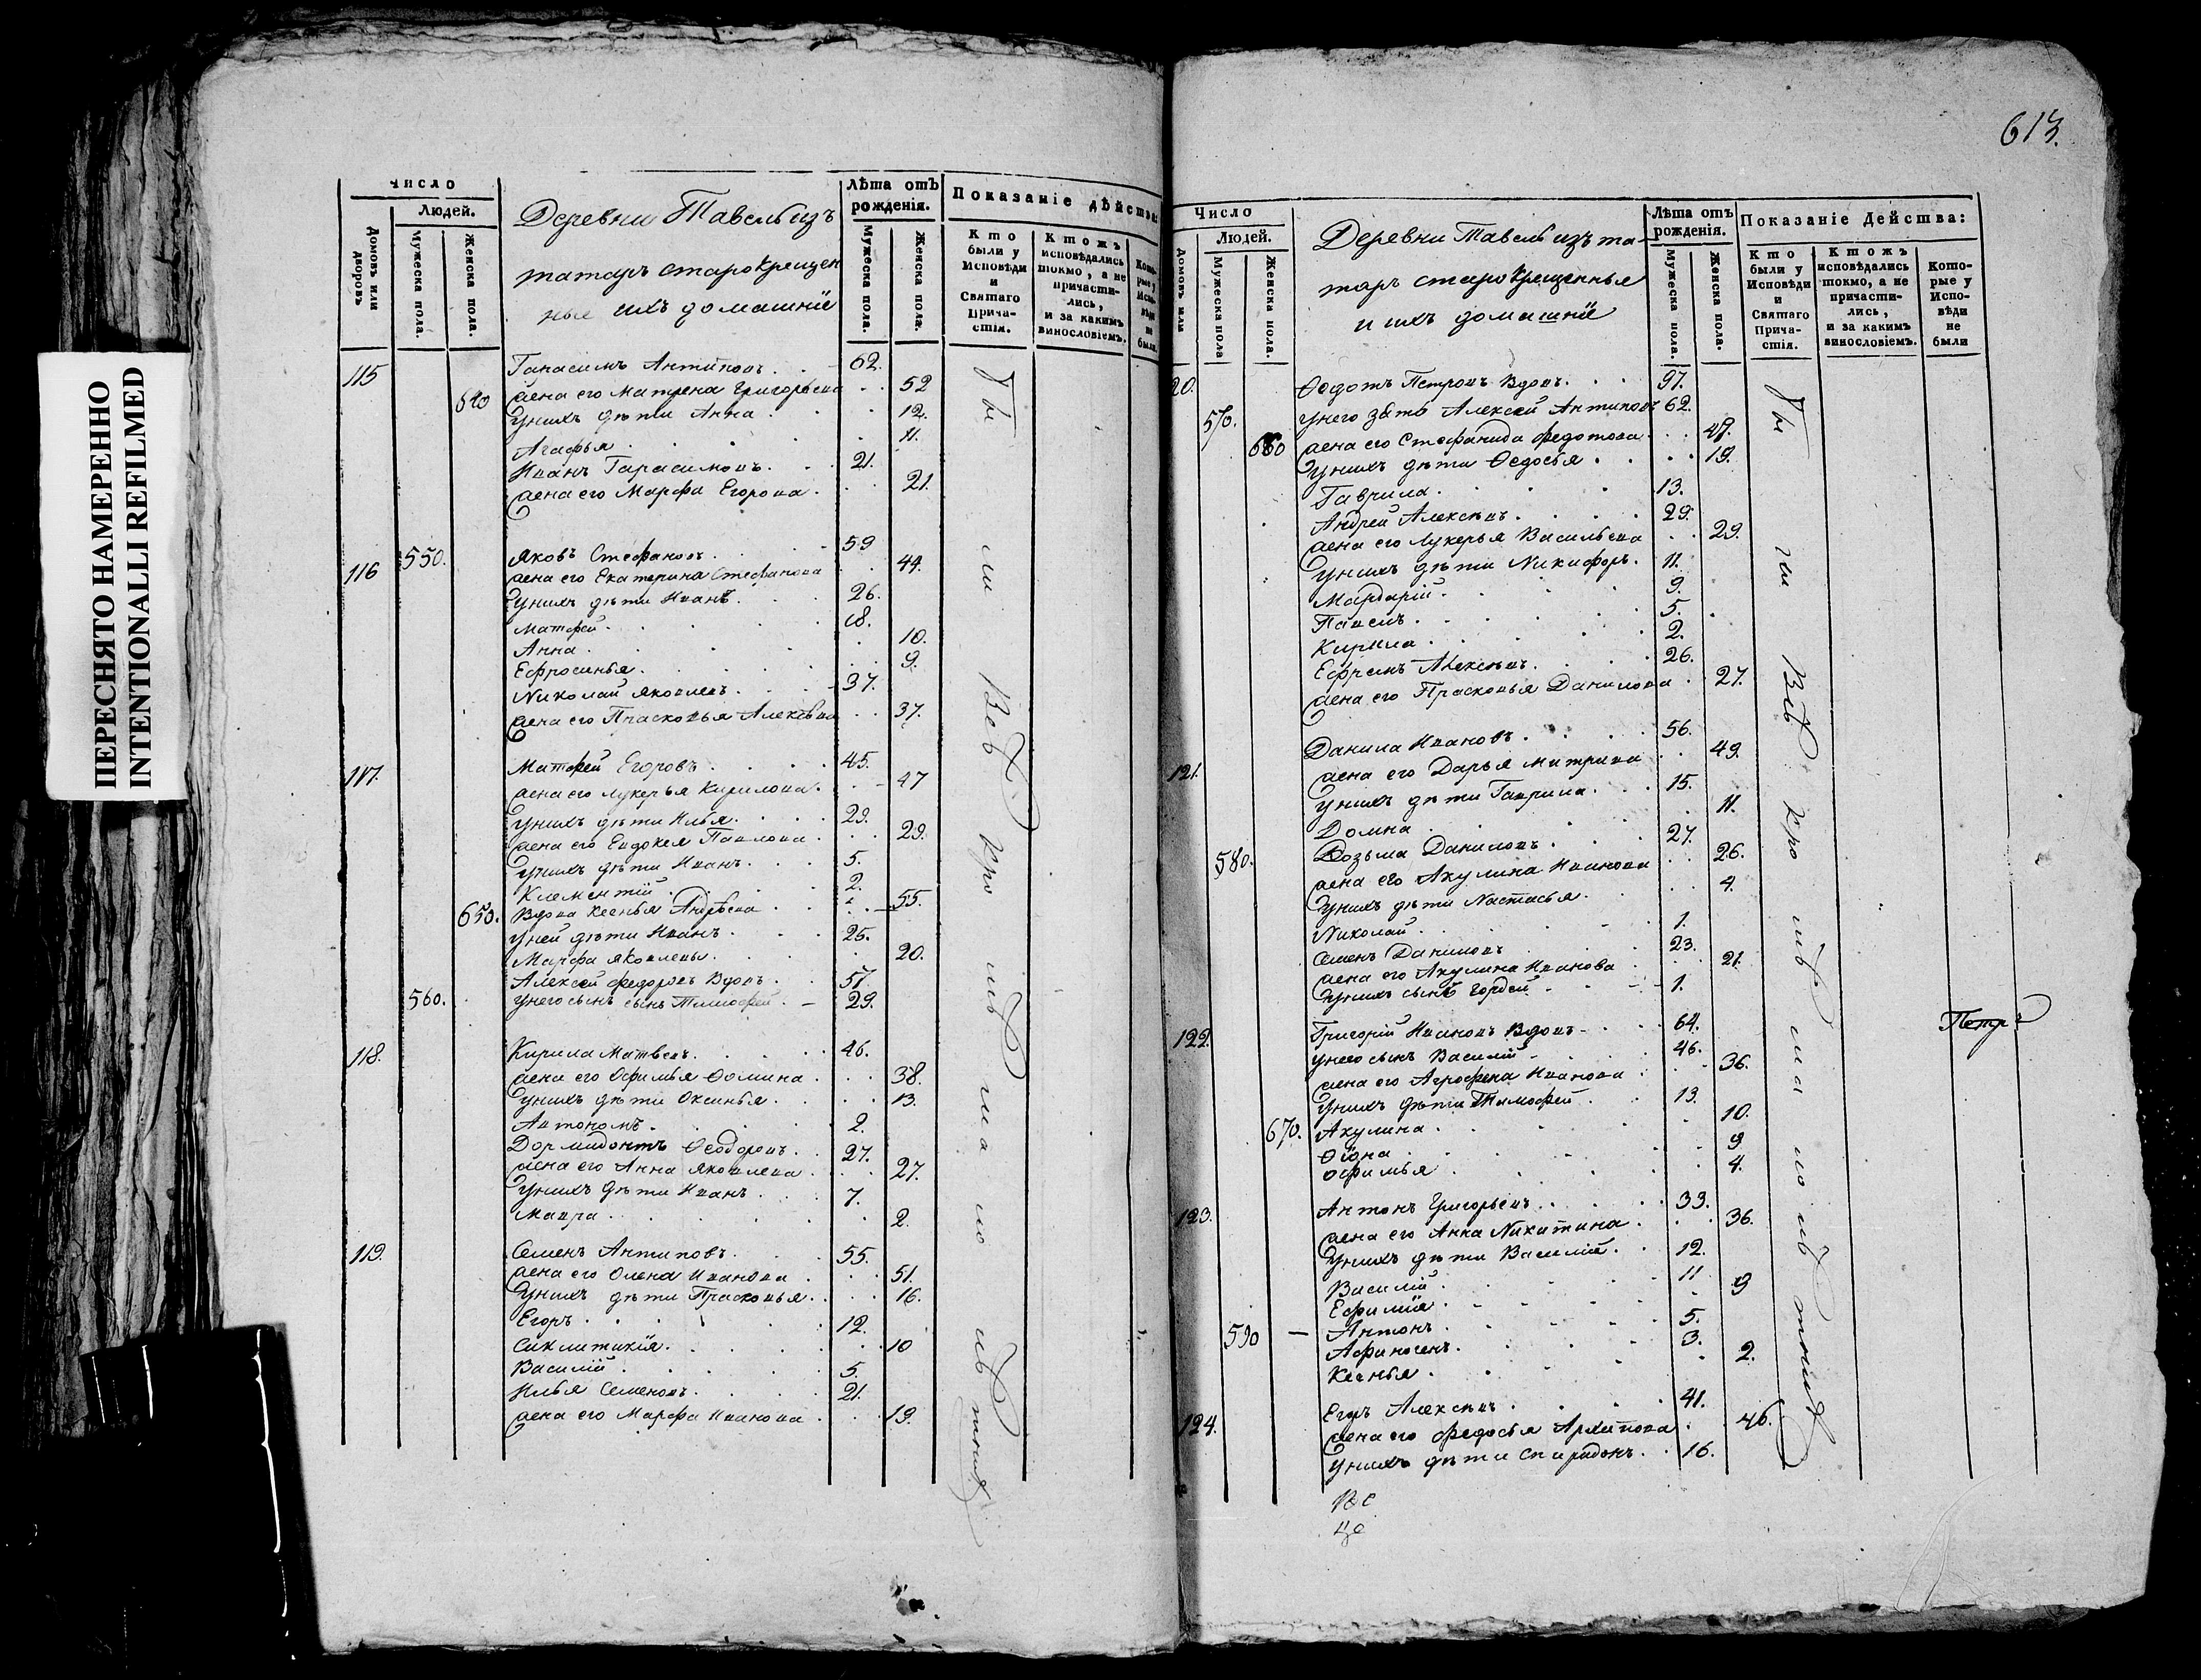 ПЕРЕСНЯТО НАМЕРЕННО
INTENTIONALLI REFILMED
Число
Домовъ или дворовъ
Людей.
Мужеска пола.
Женска пола.
Деревни Тавель изъ
татаръ старокрещен
ные ихъ домашнiе
Лѣта отъ рожденiя.
Мужеска пола.
Женска пола.
Показанiе дѣйства:
Кто были у Исповѣди и Святаго Прича-стiя.
Ктожъ исповѣдались токмо, а не причасти-лись, и за какимъ винословiемъ.
Кото-рые у Испо-вѣди не были.
115 Гарасимъ Антиповъ 62.
640 жена его Матрена Григорьева 52
у нихъ дѣти Анна 12.
Агафья 11.
Иванъ Гарасимовъ 21.
жена его Марфа Егорова 21.
116 550. Яковъ Стефановъ 59
жена его Екатерина Стефанова 44.
у нихъ дѣти Иванъ 26.
Матфей 18.
Анна 10.
Ефросинья 9.
Николай Яковлевъ 37.
жена его Прасковья Алекѣева 37.
117. Матфей Егоровъ 45.
жена его Лукерья Кирилова 47
у нихъ дѣти Илья 29.
жена его Евдокея Павлова 29.
у нихъ дѣти Иванъ 5.
Климентiй 2.
650. Вдова Ксенья Андрѣева 55.
у ней дѣти Иванъ 25.
Марфа Яковлевы 20.
Алексей Федоровъ Вдовъ 57
560. у него сынъ сынъ Тимофей 29.
118. Кирила Матвеевъ 46.
жена его Офимья Фомина 38.
у нихъ дѣти Оксинья 13.
Автономъ 2.
Дормидонтъ Ѳеодоровъ 27.
жена его Анна Яковлева 27.
у нихъ дѣти Иванъ 7.
Мавра 2.
119. Семенъ Антиповъ 55.
жена его Олена Иванова 51.
у нихъ дѣти Прасковья 16.
Егоръ 12.
Сиклитикiя 10
Василiй 5.
Илья Семеновъ 21.
жена его Марфа Иванова 19.
613.
Число
Домовъ или
Людей.
Мужеска пола
Женска пола.
Деревни Тавель изъ та-
таръ старокрещенныя
и ихъ домашнiе
Лѣта отъ рожденiя.
Мужеска пола.
Женска пола.
Показанiе Действа:
Кто были у Исповѣди и Святаго Прича-стiя.
Ктожъ исповѣдались токмо, а не причасти-лись, и за какимъ винословiемъ.
Кото-рые у Испо-вѣди не были
20. Ѳедотъ Петровъ Вдовъ 97.
570. у него зять Алексей Антиповъ 62.
660 жена его Стефанида Федотова 47.
у нихъ дѣти Ѳедосья 19.
Гаврила 13.
Андрей Алексѣевъ 29.
жена его Лукерья Васильева 29.
у нихъ дѣти Никифоръ 11.
Мардарiй 9.
Павелъ 5.
Кирила 2.
Ефремъ Алексѣевъ 26.
жена его Прасковья Данилова 27.
121. Данила Ивановъ 56.
жена его Дарья Митрива 49.
у нихъ дѣти Гаврила 15.
Домна 11.
580. Козьма Даниловъ 27.
жена его Акулина Иванова 26.
у нихъ дѣти Настасья 4.
Николай 1.
Семенъ Даниловъ 23.
жена его Акулина Иванова 21.
у нихъ сынъ Гордей 1.
122. Григорiй Ивановъ Вдовъ 64. Петръ
у него сынъ Василiй 46.
жена его Агрофена Иванова 36.
у нихъ дѣти Тимофей 13.
670. Акулина 10.
Ѳiона 9
Офимья 4.
123. Антонъ Григорьевъ 33.
жена его Анна Никитина 36.
у нихъ дѣти Василiй 12.
Василiй 11
Ефимiя 9
590 Антонъ 5.
Афиногенъ 3.
Ксенья 2.
124. Егоръ Алексѣевъ 41.
жена его Федосья Архипова 46.
у нихъ дѣти Спиридонъ 16.